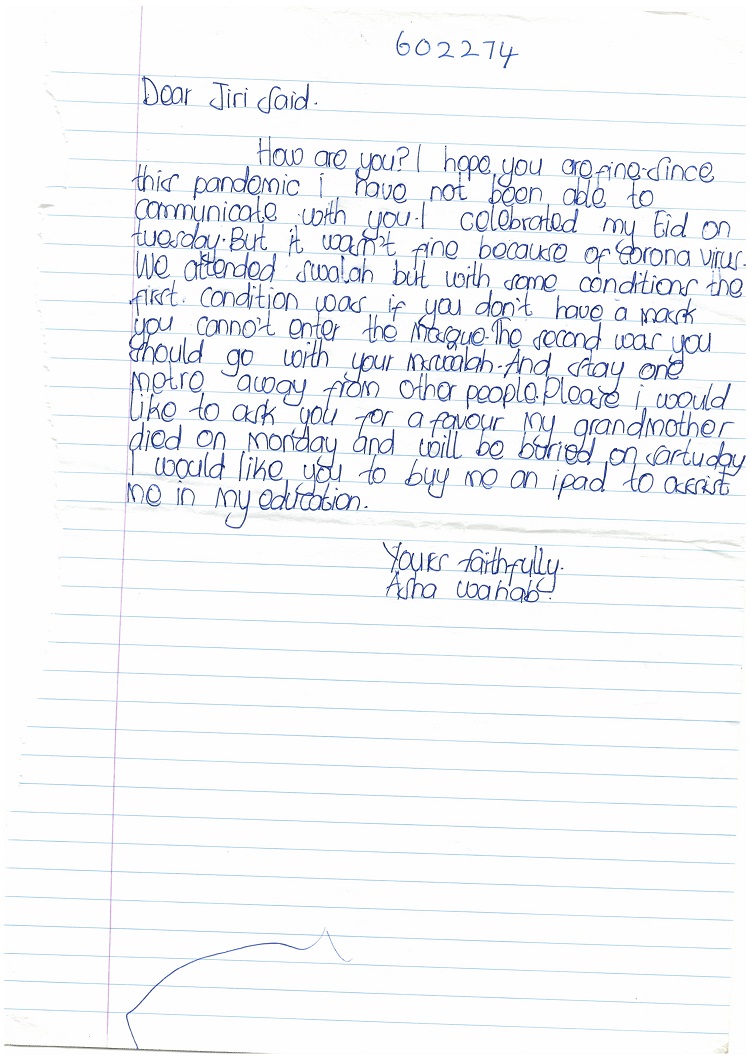 602274
Dear Jiri Said.
How are you? I hope you are fine. Since
this pandemic i have not been able to
communicate with you. I celebrated my Eid on
tuesday. But it wasn't fine because of Corona virus.
We attended swalah but with some conditions the
first. condition was if you don't have a mask
you canno't enter the Masque. The second was you
should go with your mswalah. And stay one
metre away from other people. Please i would
like to ask you for a favour my grandmother
died on monday and will be buried on sartuday
I would like you to buy me an ipad to assist
me in my education.
Yours faithfully.
Asha Wahab.